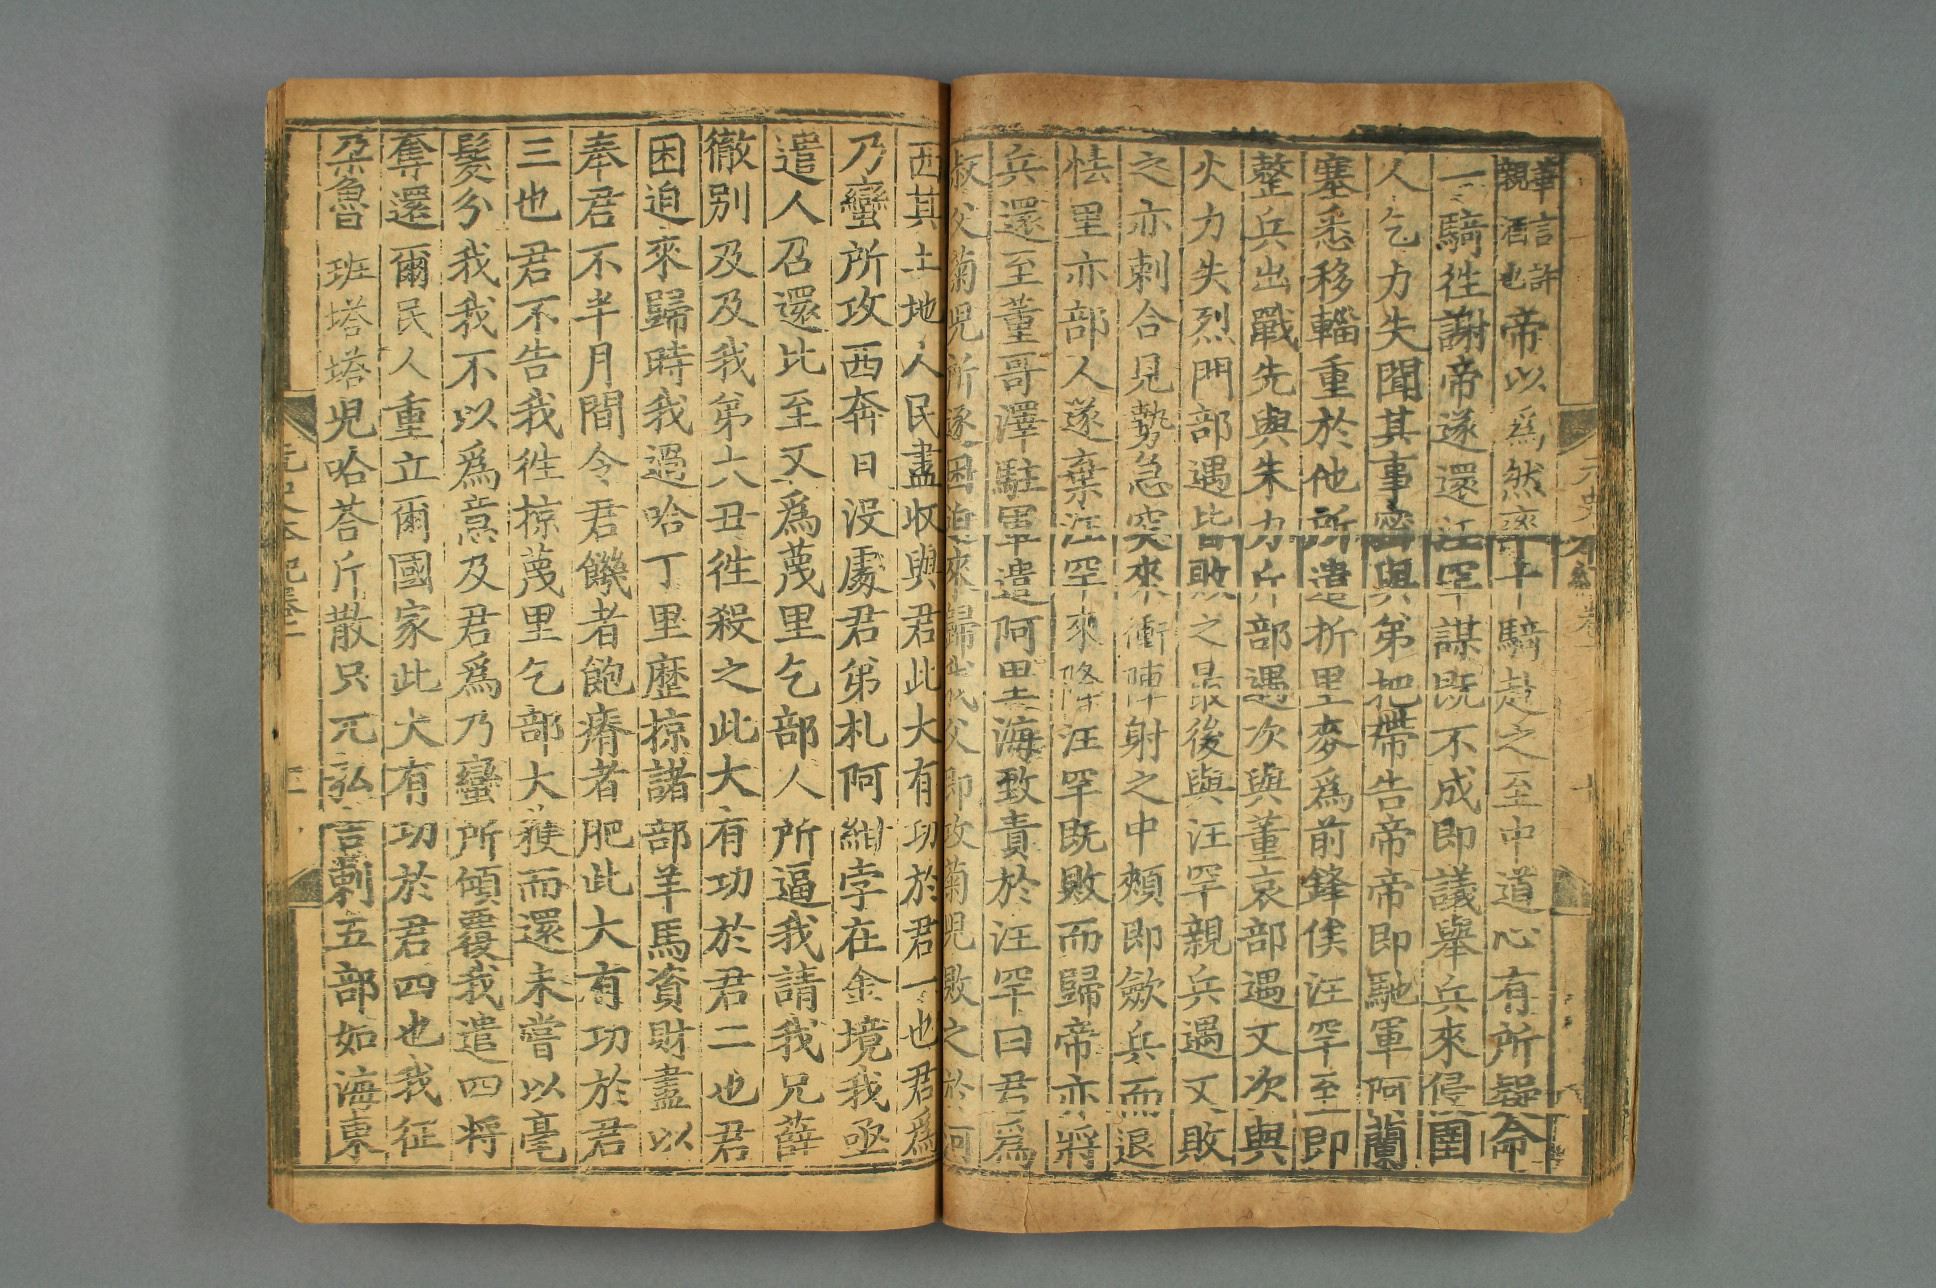 華言許
親酒也
帝以爲然率十騎赴之至中道心有所疑命
一騎徃謝帝遂還汪罕謀既不成即議舉兵來侵圉
人乞力失聞其事密與弟把帶告帝帝即馳軍阿蘭
塞悉移輜重於他所遣折里麥爲前鋒俟汪罕至即
整兵出戰先與朱力斤部遇次與董哀部遇又次與
火力失烈門部遇皆敗之最後與汪罕親兵遇又敗
之亦剌合見勢急突來衝陣射之中頰即斂兵而退
怯里亦部人遂棄汪罕來降汪罕既敗而歸帝亦將
兵還至董哥澤駐軍遣阿里海致責於汪罕曰君爲
叔父菊児所逐困迫來歸我父即攻菊児敗之於河
西其土地人民盡收與君此大有功於君一也君爲
乃蠻所攻西奔日没處君弟札阿紺孛在金境我亟
遣人召還比至又爲蔑里乞部人所逼我請我兄薛
徹别及及我弟大丑徃殺之此大有功於君二也君
困迫來歸時我過哈丁里歷掠諸部羊馬資財盡以
奉君不半月間令君饑者飽瘠者肥此大有功於君
三也君不告我徃掠蔑里乞部大獲而還未嘗以毫
髮分我我不以爲意及君爲乃蠻所傾覆我遣四将
奪還爾民人重立爾國家此大有功於君四也我征
朶魯班塔塔児哈荅斤散只兀弘吉剌五部如海東
元史本紀卷一